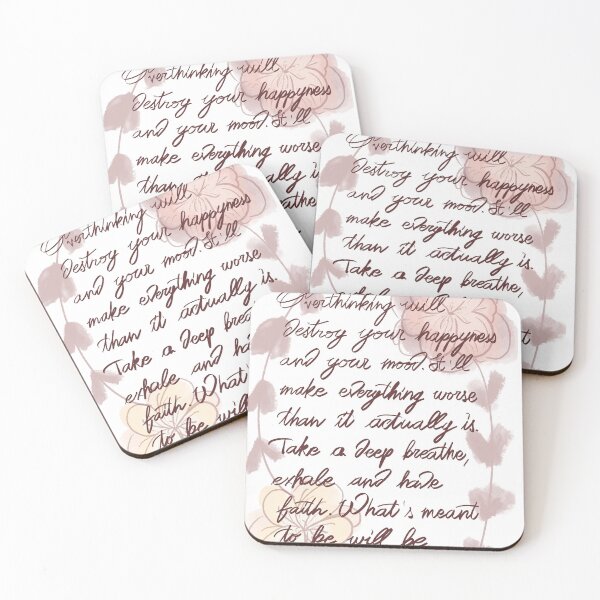 Overthinking will
destroy your happyness
and your mood. It'll
make everything worse
than actually
Overthinking will
destroy your happyness
and your mood. It'll
make everything worse
than it actually is.
Take a deep breathe,
Overthinking will
destroy your happyness
and your mood. It'll
make everything worse
than it actually is.
Take a deep
exhale and
faith. What's
to be will
Overthinking will
destroy your happyness
and your mood. It'll
make everything worse
than it actually is.
Take a deep breathe,
exhale and have
faith. What's meant
to be will be